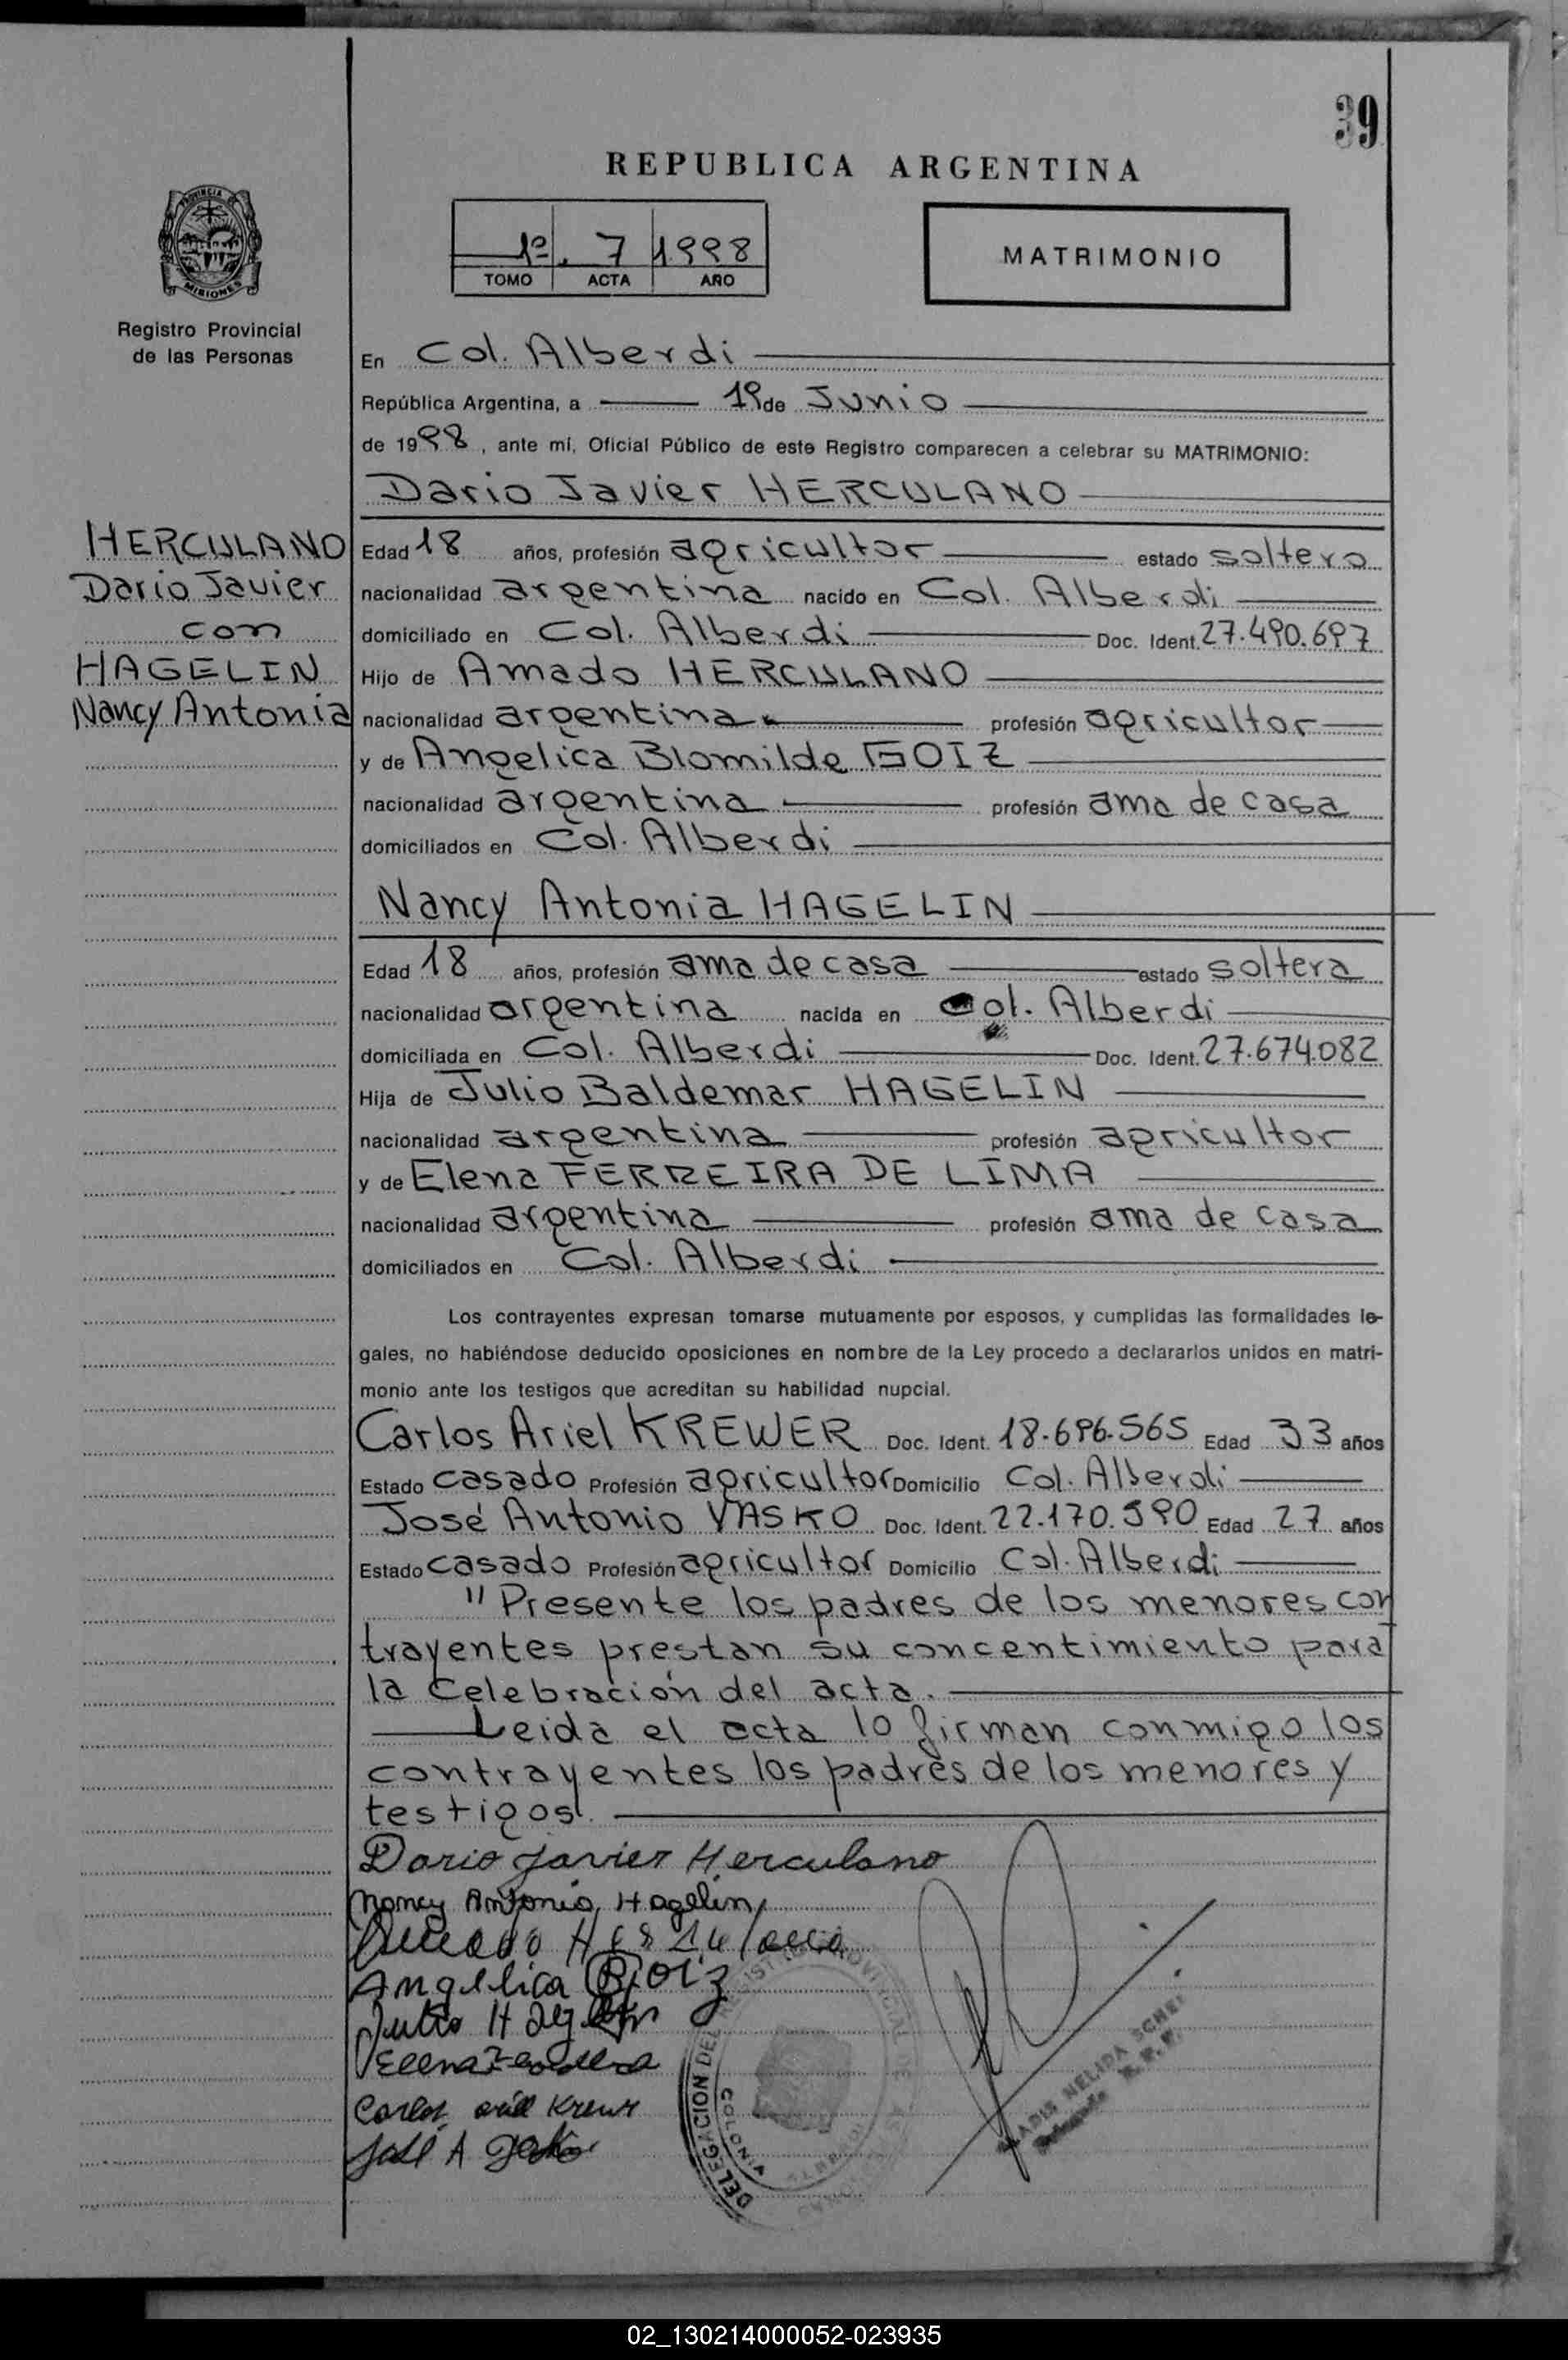 39
REPUBLICA ARGENTINA
PROVINCIA DE
MISIONES
Registro Provincial
de las Personas
1º. 7 1998
TOMO ACTA AÑO
MATRIMONIO
En Col. Alberdi
República Argentina, a 1º de Junio
de 1998, ante mi, Oficial Público de este Registro comparecen a celebrar su MATRIMONIO:
Dario Javier HERCULANO
HERCULANO
Dario Javier
con
HAGELIN
Nancy Antonia
Edad 18 años, profesión agricultor estado soltero
nacionalidad argentina nacido en Col. Alberdi
domiciliado en Col. Alberdi Doc. Ident. 27.490.697
Hijo de Amado HERCULANO
nacionalidad argentina profesión agricultor
y de Angelica Blomilde GOIZ
nacionalidad argentina profesión ama de casa
domiciliados en Col. Alberdi
Nancy Antonia HAGELIN
Edad 18 años, profesión ama de casa estado soltera
nacionalidad argentina nacida en Col. Alberdi
domiciliada en Col. Alberdi Doc. Ident. 27.674.082
Hija de Julio Baldemar HAGELIN
nacionalidad argentina profesión agricultor
y de Elena FERREIRA DE LIMA
nacionalidad argentina profesión ama de casa
domiciliados en Col. Alberdi
Los contrayentes expresan tomarse mutuamente por esposos, y cumplidas las formalidades le-
gales, no habiéndose deducido oposiciones en nombre de la Ley procedo a declararlos unidos en matri-
monio ante los testigos que acreditan su habilidad nupcial.
Carlos Ariel KREWER Doc. Ident. 18.696.565 Edad 33 años
Estado casado Profesión agricultor Domicilio Col. Alberdi
José Antonio YASKO Doc. Ident. 22.170.590 Edad 27 años
Estado casado Profesión agricultor Domicilio Col. Alberdi
"Presente los padres de los menores con
trayentes prestan su concentimiento para
la Celebración del acta.
Leida el acta lo firman conmigo los
contrayentes los padres de los menores y
testigos.
Dario Javier Herculano
Nancy Antonia Hagelin
Angelica B. Goiz
Julio Hagelin
Elena
Carlos Ariel Krewer
José A
DELEGACION DEL REGISTRO PROVINCIAL DE
COLONIA ALBERDI
NELIDA
02_130214000052-023935